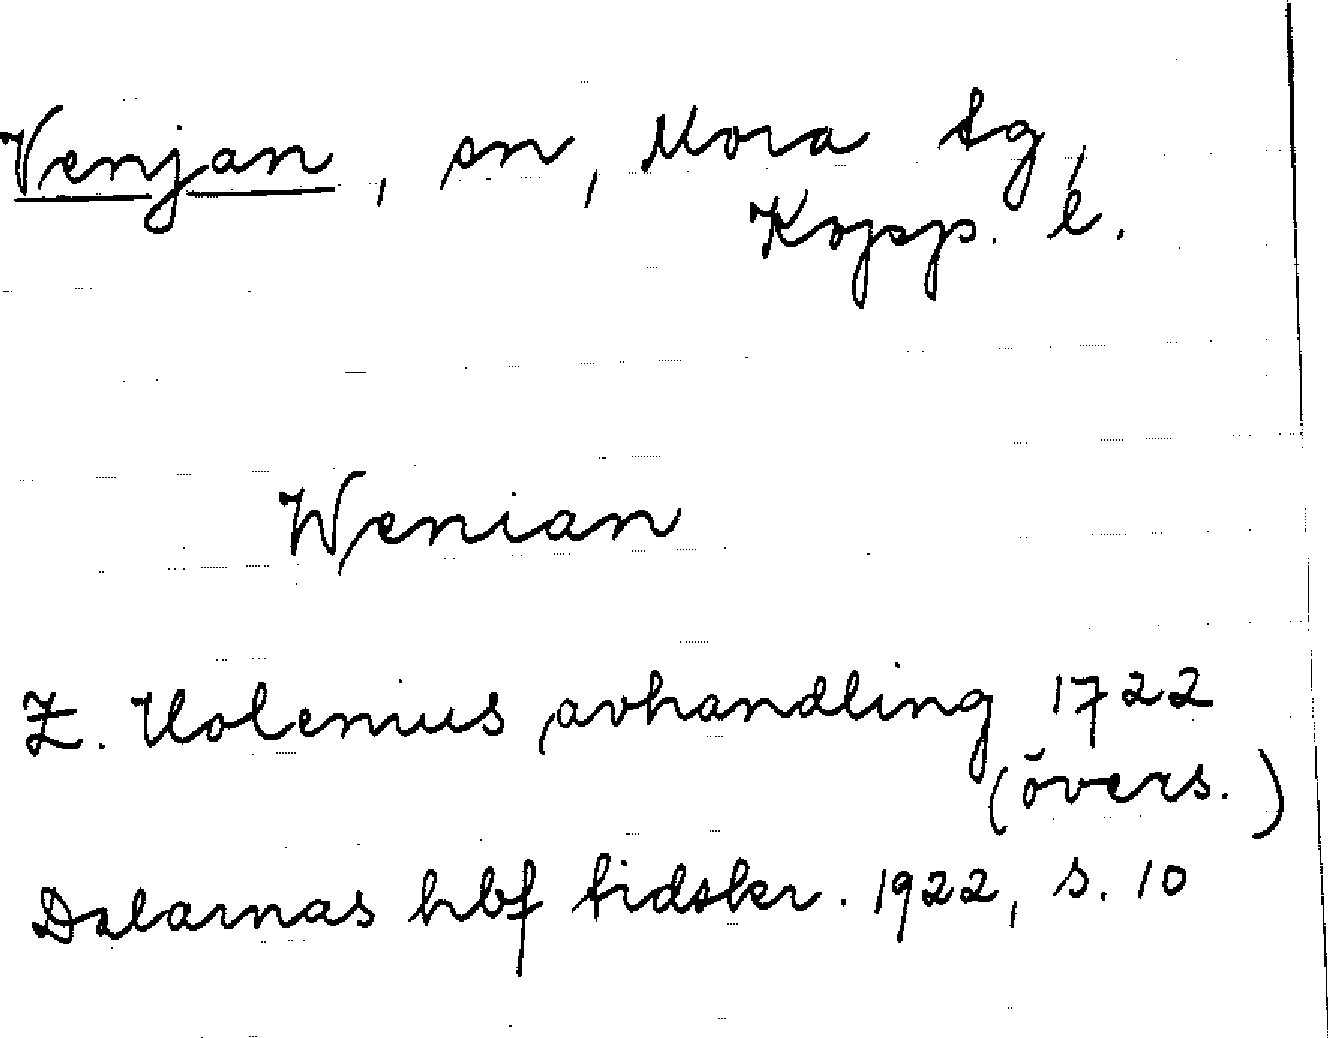 Venjan, sn, Mora tg,
Kopp. l.
Wenian
Z. Holenius avhandling 1722
(övers.)
Dalarnas hbf tidskr. 1922, s. 10